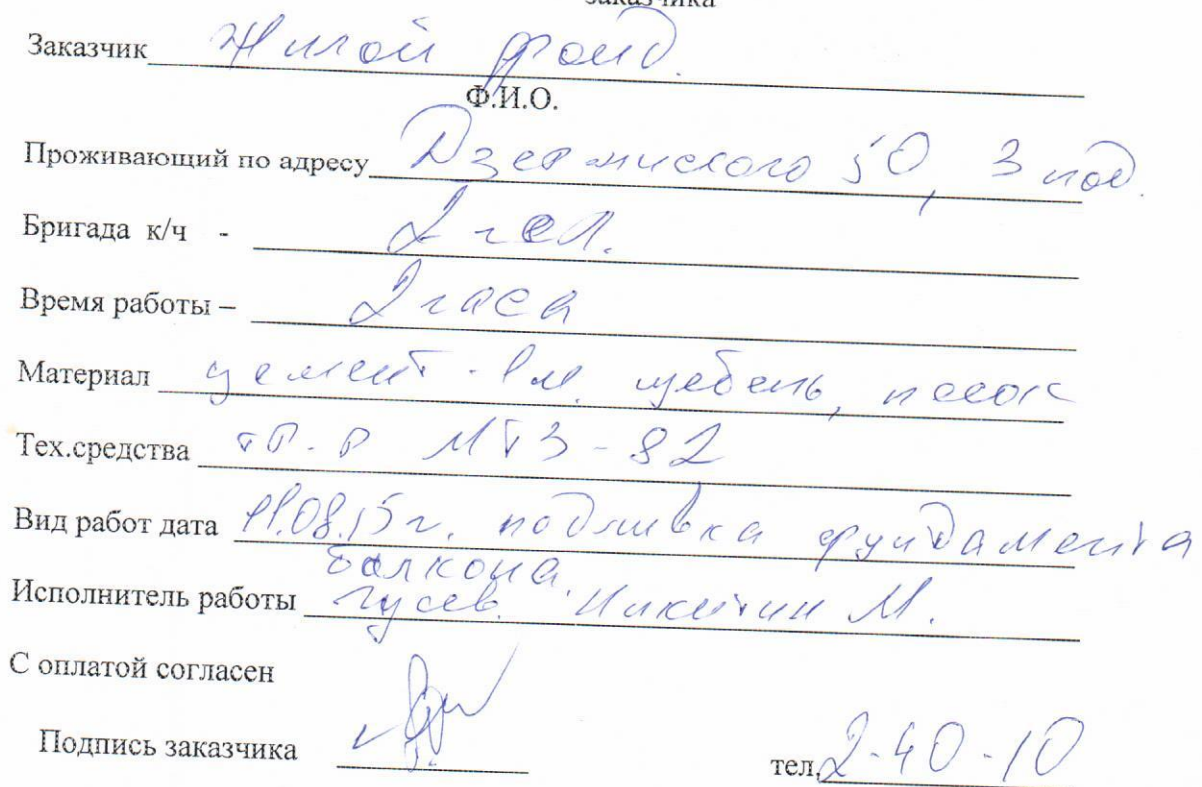 заказчика
Заказчик Жилой фонд.
Ф.И.О.
Проживающий по адресу Дзержинского 50, 3 под.
Бригада к/ч - 2 чел.
Время работы – 2 часа
Материал цемент - 1м. щебень, песок
Тех.средства тр-р МТЗ-82
Вид работ дата 11.08.15г. подливка фундамента
балкона.
Исполнитель работы Гусев. Никитин М.
С оплатой согласен
Подпись заказчика
тел. 2-40-10